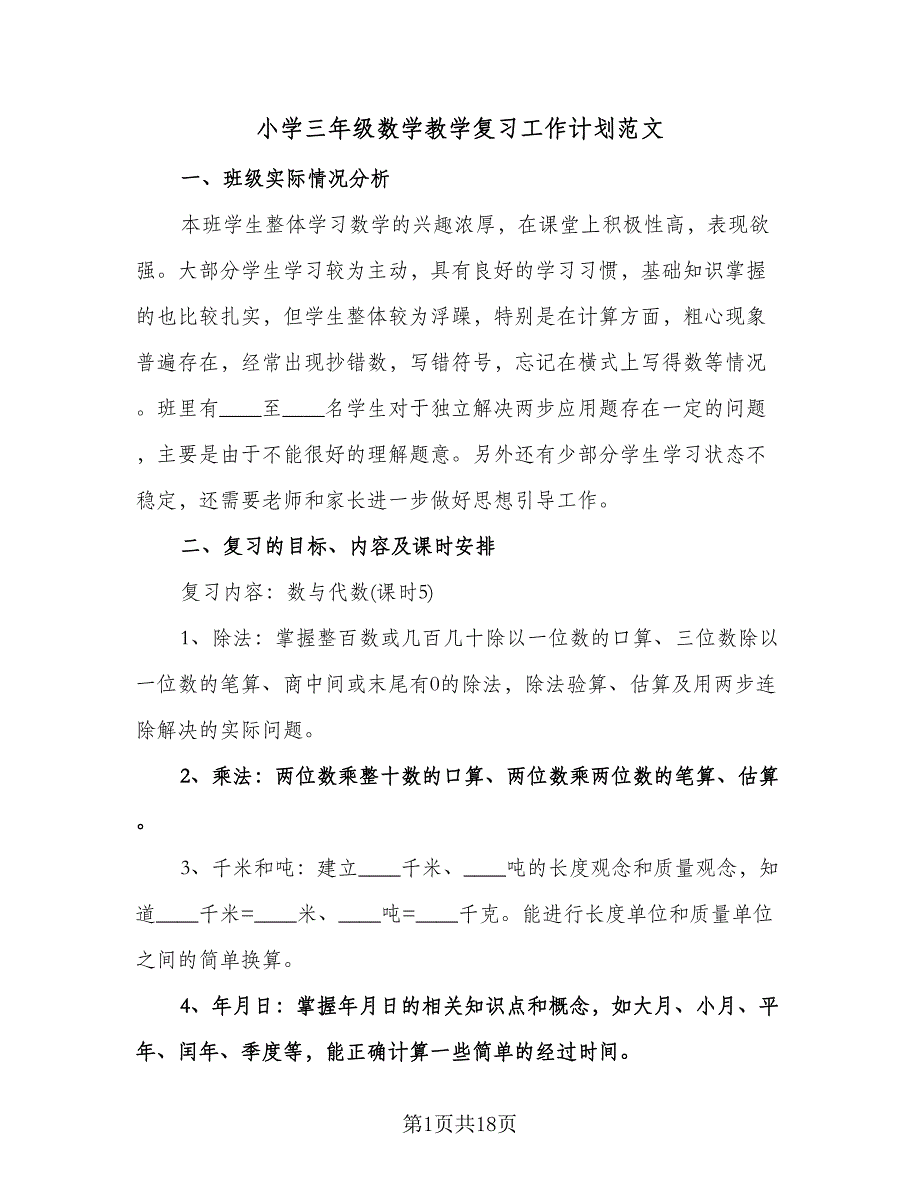 小学三年级数学教学复习工作计划范文
一、班级实际情况分析
本班学生整体学习数学的兴趣浓厚，在课堂上积极性高，表现欲
强。大部分学生学习较为主动，具有良好的学习习惯，基础知识掌握
的也比较扎实，但学生整体较为浮躁，特别是在计算方面，粗心现象
普遍存在，经常出现抄错数，写错符号，忘记在横式上写得数等情况
。班里有____至____名学生对于独立解决两步应用题存在一定的问题
，主要是由于不能很好的理解题意。另外还有少部分学生学习状态不
稳定，还需要老师和家长进一步做好思想引导工作。
二、复习的目标、内容及课时安排
复习内容：数与代数(课时5)
1、除法：掌握整百数或几百几十除以一位数的口算、三位数除以
一位数的笔算、商中间或末尾有0的除法，除法验算、估算及用两步连
除解决的实际问题。
2、乘法：两位数乘整十数的口算、两位数乘两位数的笔算、估算
。
3、千米和吨：建立____千米、____吨的长度观念和质量观念，知
道____千米=____米、____吨=____千克。能进行长度单位和质量单位
之间的简单换算。
4、年月日：掌握年月日的相关知识点和概念，如大月、小月、平
年、闰年、季度等，能正确计算一些简单的经过时间。
第1页共18页